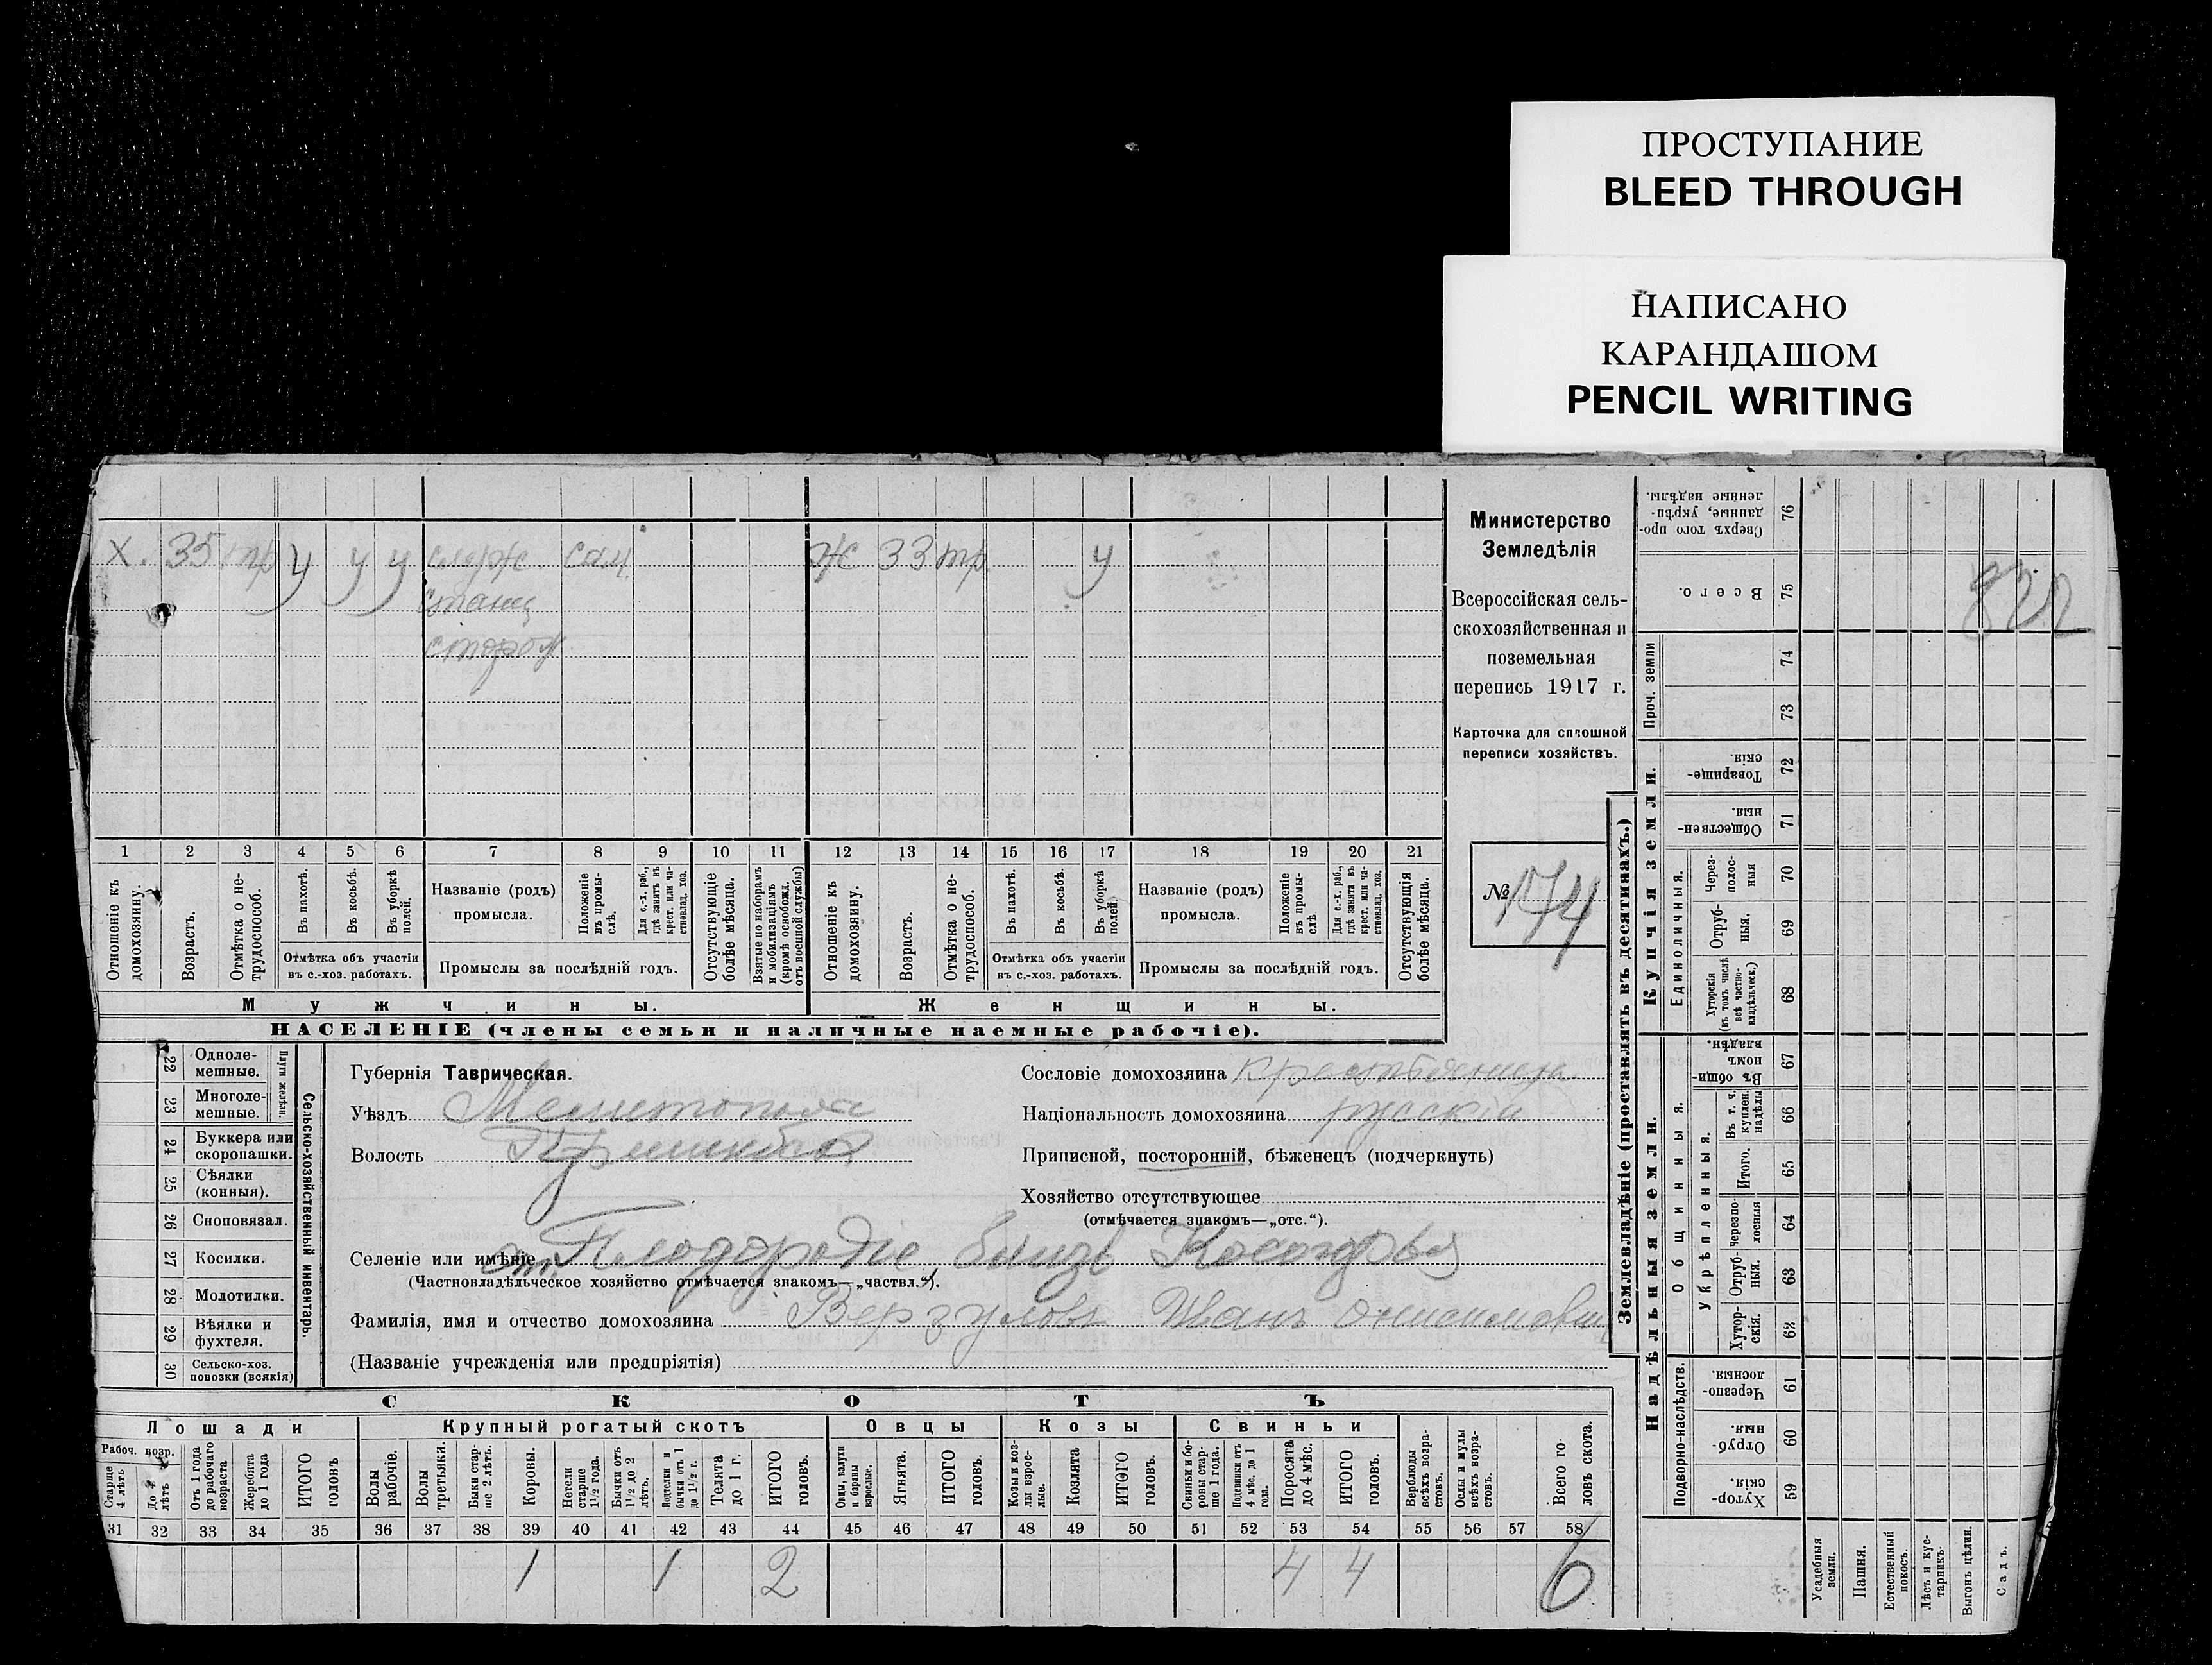 ПРОСТУПАНИЕ
BLEED THROUGH
НАПИСАНО
КАРАНДАШОМ
PENCIL WRITING
Х. 35 тр у у у служ. сам. Ж 33 тр. у
станц
сторож
1 2 3 4 5 6 7 8 9 10 11 12 13 14 15 16 17 18 19 20 21
Отношеніе къ домохозяину.
Возрастъ.
Отмѣтка о нетрудоспособ.
Въ пахотѣ.
Въ косьбѣ.
Въ уборкѣ полей.
Отмѣтка объ участіи
въ с.-хоз. работахъ.
Названіе (родъ)
промысла.
Положеніе въ промыслѣ.
Для с.-х. раб., гдѣ занятъ въ крест. или частновлад. хоз.
Промыслы за послѣдній годъ.
Отсутствующіе болѣе мѣсяца.
Взятые по наборамъ и мобилизаціямъ (кромѣ освобожд. отъ военной службы)
Отношеніе къ домохозяину.
Возрастъ.
Отмѣтка о нетрудоспособ.
Въ пахотѣ.
Въ косьбѣ.
Въ уборкѣ полей.
Отмѣтка объ участіи
въ с.-хоз. работахъ.
Названіе (родъ)
промысла.
Положеніе въ промыслѣ
Для с.-х. раб., гдѣ занята въ крест. или частновлад. хоз.
Промыслы за послѣдній годъ.
Отсутствующія болѣе мѣсяца.
Мужчины.
Женщины.
НАСЕЛЕНІЕ (члены семьи и наличные наемные рабочіе).
Министерство
Земледѣлія
Всероссійская сель-
скохозяйственная и
поземельная
перепись 1917 г.
Карточка для сплошной
переписи хозяйствъ.
№ 174
22 Одноле-
мешные.
23 Многоле-
мешные.
Плуги желѣзн.
24 Буккера или
скоропашки.
25 Сѣялки
(конныя).
26 Сноповязал.
27 Косилки.
28 Молотилки.
29 Вѣялки и
фухтеля.
30 Сельско-хоз.
повозки (всякія)
Сельско-хозяйственный инвентарь.
Губернія Таврическая.
Уѣздъ Мелитопол
Волость
Сословіе домохозяина
Національность домохозяина русскій
Приписной, посторонній, бѣженецъ (подчеркнуть)
Хозяйство отсутствующее
(отмѣчается знакомъ—„отс.“).
Селеніе или имѣніе ст. Плодородіе, близъ
(Частновладѣльческое хозяйство отмѣчается знакомъ—„частвл.“).
Фамилія, имя и отчество домохозяина Верзуловъ Иванъ Онисимович
(Названіе учрежденія или предпріятія)
СКОТЪ
Лошади
Крупный рогатый скотъ
Овцы
Козы
Свиньи
Рабоч. возр.
Старше 4 лѣтъ
До 4 лѣтъ
Отъ 1 года до рабочаго возраста
Жеребята до 1 года
ИТОГО головъ
Волы рабочіе.
Волы третьяки.
Быки старше 2 лѣтъ.
Коровы.
Нетели старше 1½ года.
Бычки отъ 1½ до 2 лѣтъ.
Подтелки и бычки отъ 1 до 1½ г.
Телята до 1 г.
ИТОГО головъ.
Овцы, валухи и бараны взрослые.
Ягнята.
ИТОГО головъ.
Козы и козлы взрослые.
Козлята
ИТОГО головъ.
Свиньи и боровы старше 1 года.
Подсвинки отъ 4 мѣс. до 1 года.
Поросята до 4 мѣс.
ИТОГО головъ.
Верблюды всѣхъ возрастовъ.
Ослы и мулы всѣхъ возрастовъ.
Всего головъ скота.
31 32 33 34 35 36 37 38 39 40 41 42 43 44 45 46 47 48 49 50 51 52 53 54 55 56 57 58
1 1 2 4 4 6
Землевладѣніе (проставлять въ десятинахъ.)
Купчія земли.
Надѣльныя земли.
Сверхъ того проданные, укрѣпленные надѣлы. 76
Всего. 75
822
Проч. земли
74
73
Товарищескія. 72
Общественныя 71
Единоличныя.
Черезполосныя 70
Отрубныя. 69
Хуторскія (въ томъ числѣ всѣ частновладѣльческ.) 68
Въ общинномъ владѣн. 67
Общинныя.
Укрѣпленныя.
Въ т. ч. куплен. надѣлы 66
Итого. 65
Черезполосныя 64
Отрубныя. 63
Хуторскія. 62
Подворно-наслѣдств.
Черезполосныя. 61
Отрубныя. 60
Хуторскія. 59
Усадебныя земли.
Пашня.
Естественный покосъ.
Лѣсъ и кустарникъ.
Выгонъ цѣлин.
Садъ.